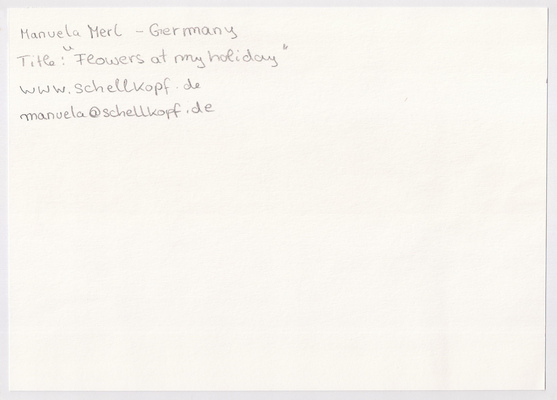 Manuela Merl - Germany
Title: "Flowers at my holiday"
www.schellkopf.de
manuela@schellkopf.de